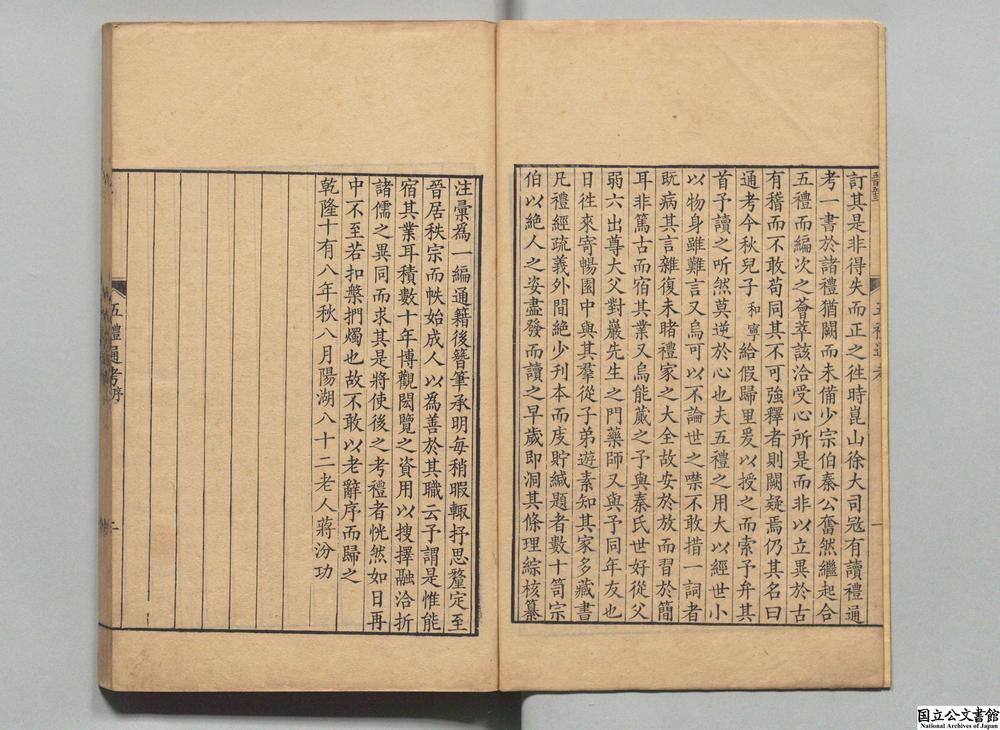 訂其是非得失而正之往時崑山徐大司冦有讀禮通
考一書於諸禮猶闕而未備少宗伯秦公奮然繼起合
五禮而編次之薈萃該洽受心所是而非以立異於古
有稽而不敢苟同其不可強釋者則闕疑焉仍其名曰
通考今秋兒子和寧給假歸里爰以授之而索予弁其
首予讀之听然莫逆於心也夫五禮之用大以經世小
以物身雖難言又烏可以不論世之噤不敢措一詞者
既病其言雜復未睹禮家之大全故安於放而習於簡
耳非篤古而宿其業又烏能蕆之予與秦氏世好從父
弱六出尊大父對巖先生之門藥師又與予同年友也
日往來寄暢園中與其羣從子弟遊素知其家多藏書
凡禮經疏義外間絶少刊本而庋貯緘題者數十笥宗
伯以絶人之姿盡發而讀之早歲即洞其條理綜核纂
五禮通考
一
注彙爲一編通籍後簪筆承明每稍暇輒抒思釐定至
晉居秩宗而帙始成人以爲善於其職云予謂是惟能
宿其業耳積數十年博觀閎覽之資用以搜擇融洽折
諸儒之異同而求其是將使後之考禮者恍然如日再
中不至若扣槃捫燭也故不敢以老辭序而歸之
乾隆十有八年秋八月陽湖八十二老人蔣汾功
五禮通考序
二
国立公文書館
National Archives of Japan